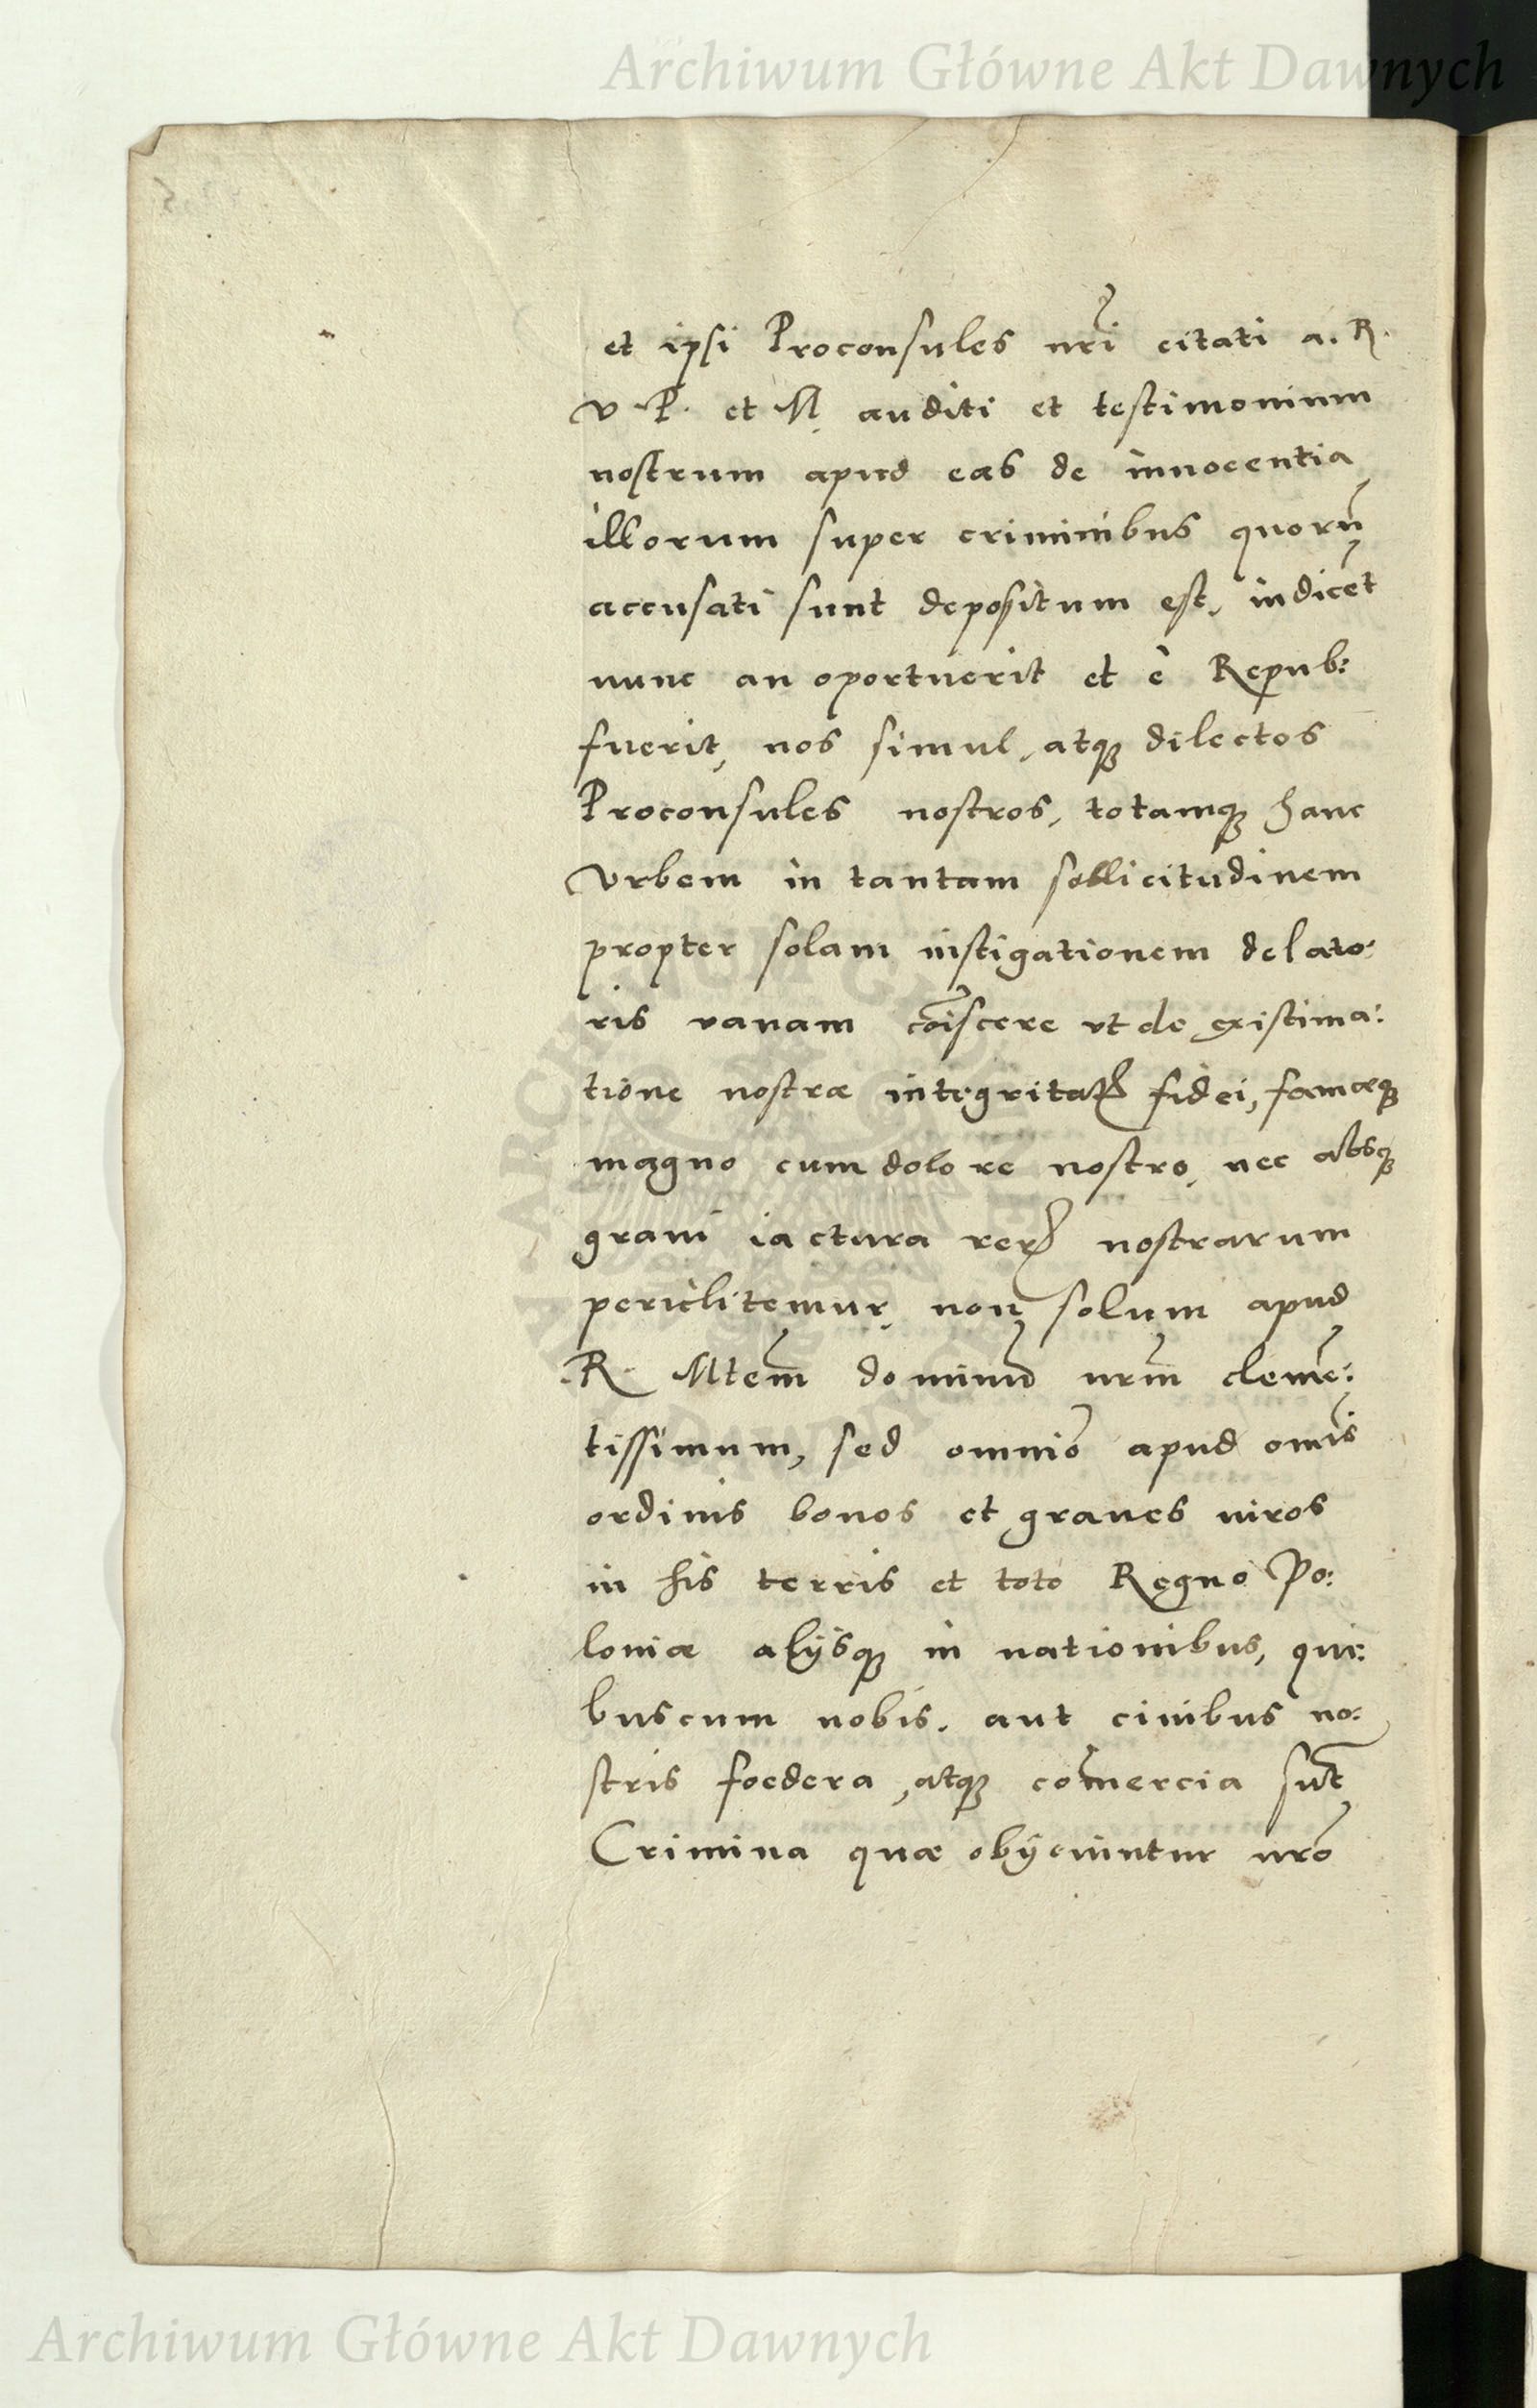 Archiwum Główne Akt Dawnych
et ipsi Proconsules nr̃i citati a. R.
V. P. et M. auditi et testimonium
nostrum apud eas de innocentia
illorum super criminibus quorũ
accusati sunt depositum est, iudicẽt
nunc an oportuerit et è Repub:
fuerit, nos simul, atq₃ dilectos
Proconsules nostros, totamq₃ hanc
Vrbem in tantam sollicitudinem
propter solam instigationem delato:
ris vanam cõiicere vt de existima:
tione nostræ integritatꝭ fidei, famæq₃
magno cum dolore nostro, nec absq₃
graui iactura rerꝭ nostrarum
periclitemur, non solum apud
R. Mtem̃ dominũ nrm̃ clemẽ:
tissimum, sed omniõ apud omĩs
ordinis bonos et graues uiros
in his terris et toto Regno Po:
loniæ alijsq₃ in nationibus, qui:
buscum nobis, aut ciuibus no:
stris foedera, atq₃ com̃ercia sũt
Crimina quæ obijciuntur nrõ
Archiwum Główne Akt Dawnych